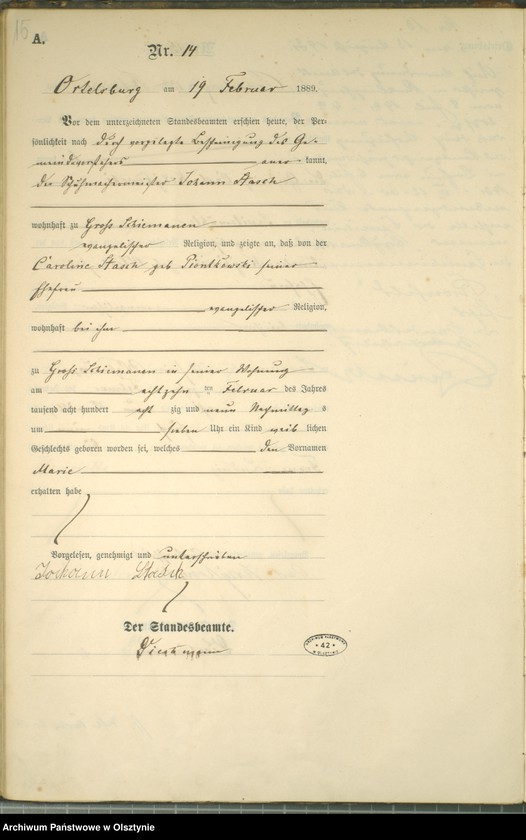 15
A.
Nr. 14
Ortelsburg am 19 Februar 1889.
Vor dem unterzeichneten Standesbeamten erschien heute, der Per-
sönlichkeit nach durch vorgelegte Bescheinigung des Ge-
meindevorstehers aner kannt,
der Schuhmachermeister Johann Stasch
wohnhaft zu Groß Schiemanen
evangelischer Religion, und zeigte an, daß von der
Caroline Stasch geb Piontkowski seiner
Ehefrau
evangelischer Religion,
wohnhaft bei ihm
zu Groß Schiemanen in seiner Wohnung
am achtzehn ten Februar des Jahres
tausend acht hundert acht zig und neun Nachmittag s
um sieben Uhr ein Kind weib lichen
Geschlechts geboren worden sei, welches den Vornamen
Marie
erhalten habe
Vorgelesen, genehmigt und unterschrieben
Johann Stasch
Der Standesbeamte.
42
Archiwum Państwowe w Olsztynie